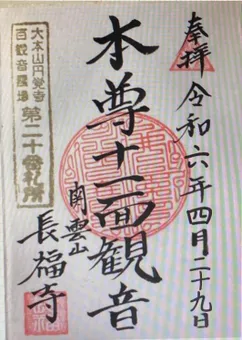 奉拝
令和六年四月二十九日
本尊十一面観音
関雲山
長福寺
大本山円覚寺
百観音霊場
第二十番札所